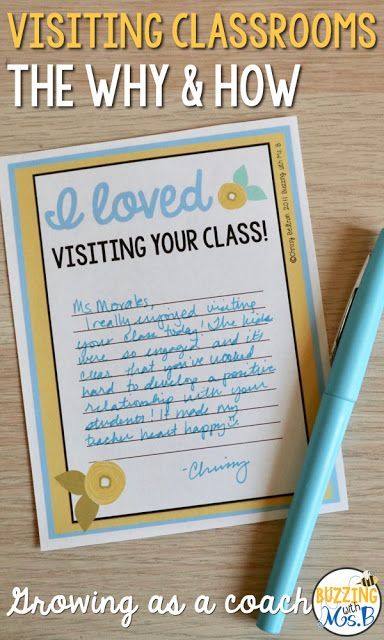 VISITING CLASSROOMS
THE WHY & HOW
I loved
VISITING YOUR CLASS!
©Chrissy Beltran 2017 Buzzing with Ms. B
Ms Morales,
I really enjoyed visiting
your class today! The kids
were so engaged and it's
clear that you've worked
hard to develop a positive
relationship with your
students! It made my
teacher heart happy
-Chrissy
Growing as a coach
BUZZING
with
Ms. B